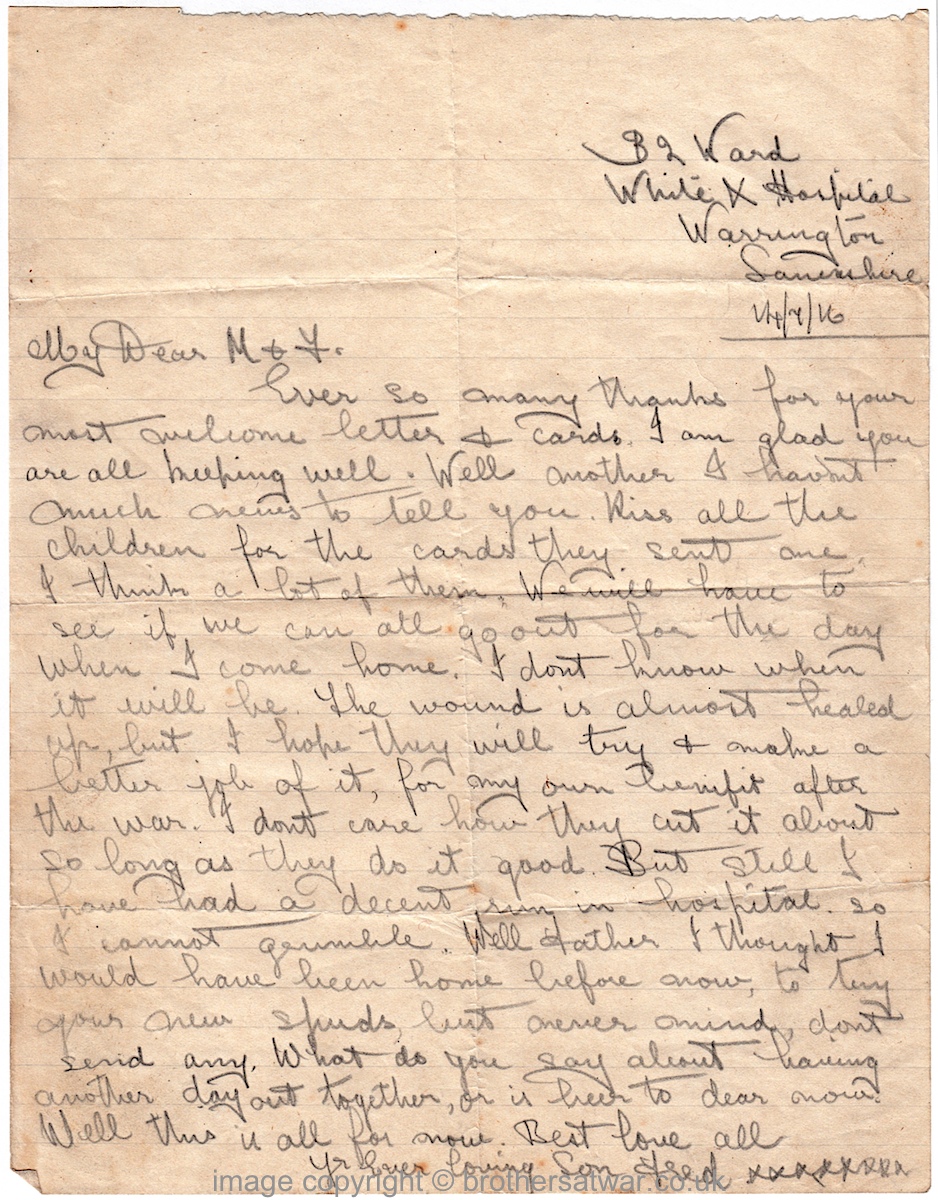 B2 Ward
White X Hospital
Warrington
Lancashire
14/7/16
My Dear M & F.
Ever so many thanks for your
most welcome letter & cards. I am glad you
are all keeping well. Well mother I havnt
much news to tell you. Kiss all the
children for the cards they sent me.
I think a lot of them. We will have to
see if we can all go out for the day
when I come home. I dont know when
it will be. The wound is almost healed
up, but I hope they will try & make a
better job of it, for my own benifit after
the war. I dont care how they cut it about
so long as they do it good. But still I
have had a decent run in hospital. so
I cannot grumble. Well Father I thought I
would have been home before now, to try
your new spuds, but never mind, dont
send any. What do you say about having
another day out together, or is beer to dear now.
Well this is all for now. Best love all
Yr Ever Loving Son Fred xxxxxxxx
image copyright © brothersatwar.co.uk